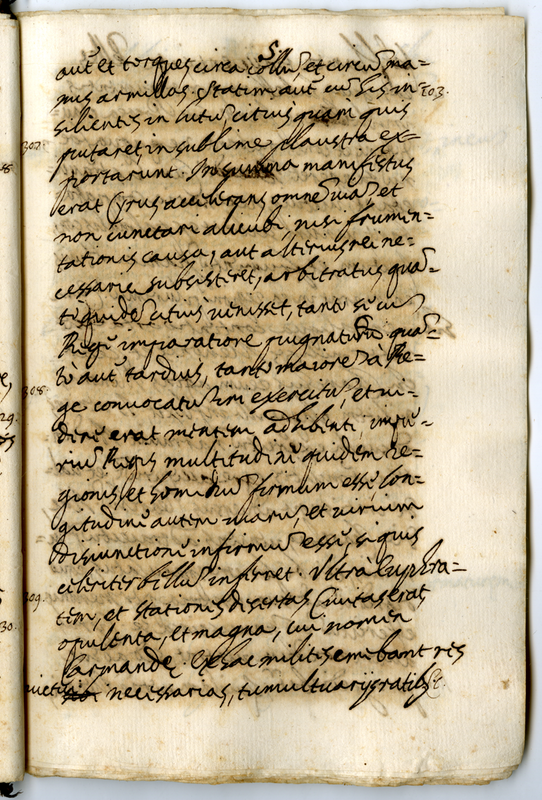 5
aut et torques circa collũ, et circũ ma=
nus armillas. Statim aut cũ his in=
103.
silientes in lutũ, citius quam quis
307.
putaret, in sublime plaustra ex=
portarunt. In summa manifestus
erat Cyrus accelerans omnẽ viã, et
non cunctari alicubi, nisi frumen=
tationis causa, aut alterius rei ne=
cessariæ subsisteret, arbitratus quã=
tò quidẽ citius venisset, tantò se cũ
Rege imparatiore pugnaturũ, quã=
tò aut tardius, tantò maiorẽ à Re=
308.
ge convocatum iri exercitũ, et vi=
dere erat mentem adhibenti, impe=
riũ Regis multitudine quidem re=
gionis et hominũ firmum esse, lon=
gitudine autem viarũ, et virium
disiunctione infirmũ esse, si quis
celeriter bellũ inferret. Ultrà Euphra=
309.
tem, et stationes desertas Civitas erat
30.
opulenta, et magna, cui nomen
Carmande. Ex hac milites emebant res
necessarias, tumultuarijs ratib9